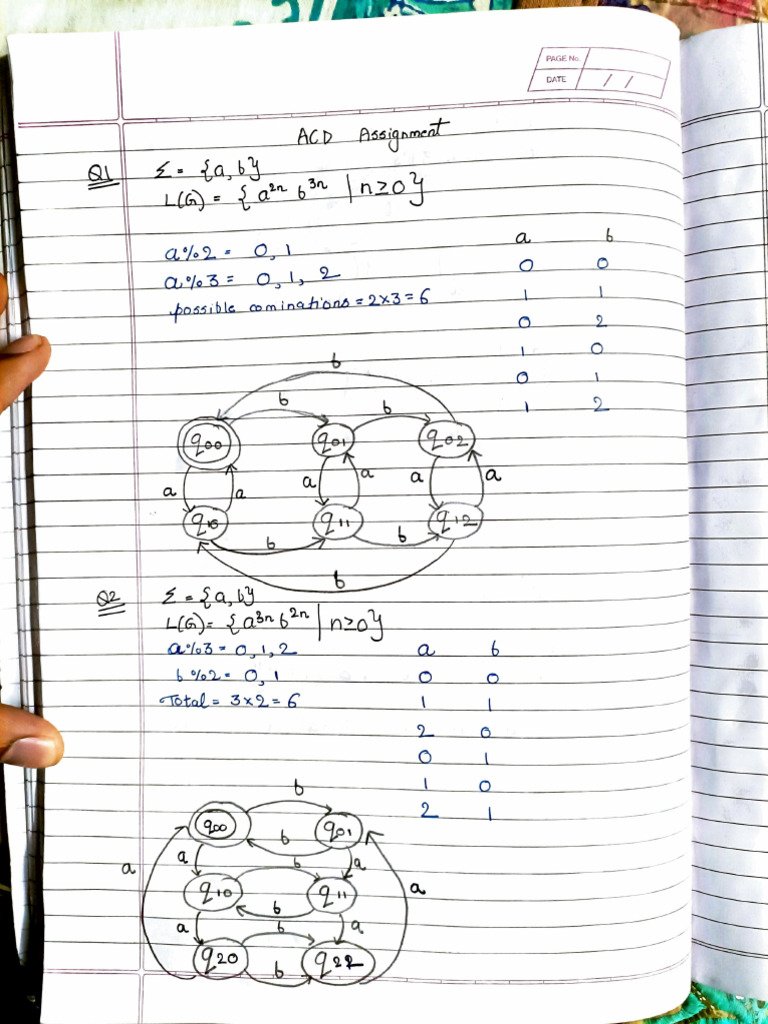 PAGE No.
DATE / /
ACD Assignment
Q1 Σ = {a, b}
L(G) = { a²ⁿ b³ⁿ | n≥0}
a%2 = 0, 1
a%3 = 0, 1, 2
possible cominations = 2×3 = 6
a b
0 0
1 1
0 2
1 0
0 1
1 2
b
b b
q00 q01 q02
a a a a a a
q10 q11 q12
b b
b
Q2 Σ = {a, b}
L(G) = {a³ⁿ b²ⁿ | n≥0}
a%3 = 0, 1, 2
b%2 = 0, 1
Total = 3×2 = 6
a b
0 0
1 1
2 0
0 1
1 0
2 1
b
q00 q01
b
a a b a a
q10 q11
b
a b a
q20
b